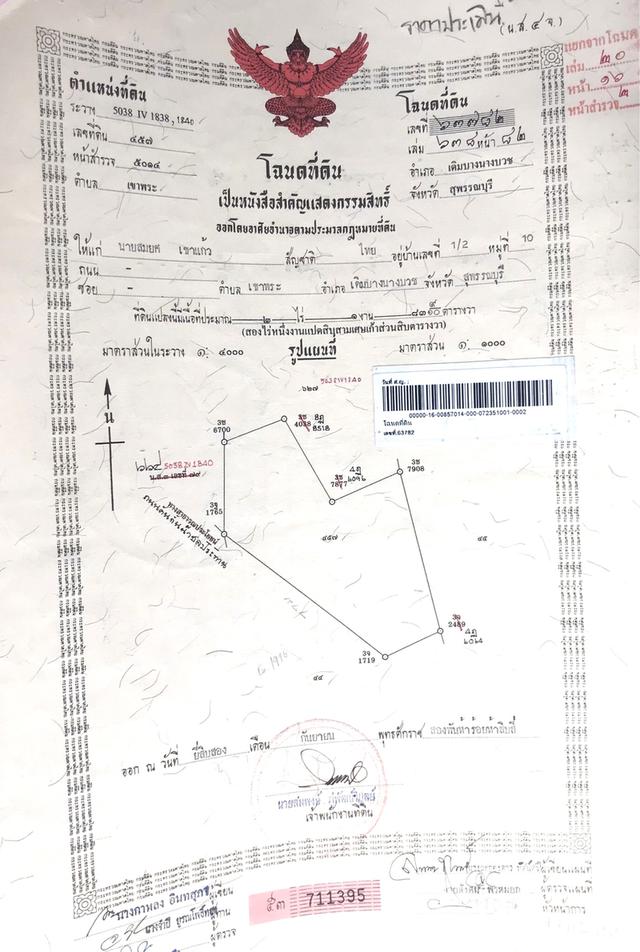 ราคาประเมิน
(น.ส.๔ จ.)
แยกจากโฉนด
เล่ม ๒๐
หน้า ๑๖
หน้าสำรวจ ๒
ตำแหน่งที่ดิน
ระวาง 5038 IV 1838, 1840
เลขที่ดิน ๔๕๗
หน้าสำรวจ ๕๐๑๔
ตำบล เขาพระ
โฉนดที่ดิน
เลขที่ ๖๓๗๘๒
เล่ม ๖๓๘ หน้า ๘๒
อำเภอ เดิมบางนางบวช
จังหวัด สุพรรณบุรี
โฉนดที่ดิน
เป็นหนังสือสำคัญแสดงกรรมสิทธิ์
ออกโดยอาศัยอำนาจตามประมวลกฎหมายที่ดิน
ให้แก่ นายสมยศ เขาแก้ว สัญชาติ ไทย อยู่บ้านเลขที่ 1/2 หมู่ที่ 10
ถนน -
ซอย - ตำบล เขาพระ อำเภอ เดิมบางนางบวช จังหวัด สุพรรณบุรี
ที่ดินแปลงนี้มีเนื้อที่ประมาณ ๒ ไร่ ๑ งาน ๘๓ ๙/๑๐ ตารางวา
(สองไร่หนึ่งงานแปดสิบสามเศษเก้าส่วนสิบตารางวา)
มาตราส่วนในระวาง ๑: ๔๐๐๐ รูปแผนที่ มาตราส่วน ๑: ๑๐๐๐
5038 IV 1840
๖๒๗
วันที่ ส.ญ.:
00000-16-00857014-000-072351001-0002
โฉนดที่ดิน
เลขที่:63782
น
3ช
6700
3ช
4038
8ฎ
8518
5038 IV 1840
3ช
7877
4ฎ
3ช
7908
3จ
1765
ทางสาธารณประโยชน์
ถนนคันคลองชลประทาน
๔๕๗
๔๕
3จ
2489
4ฎ
3จ
1719
๔๔
ออก ณ วันที่ ยี่สิบสอง เดือน กันยายน พุทธศักราช สองพันห้าร้อยห้าสิบสี่
เจ้าพนักงานที่ดิน
นางกาหลง อินทสุกข ผู้เขียน
ผู้ตรวจ
๕๓ 711395
ผู้เขียนแผนที่
ผู้ตรวจแผนที่
หัวหน้าการ